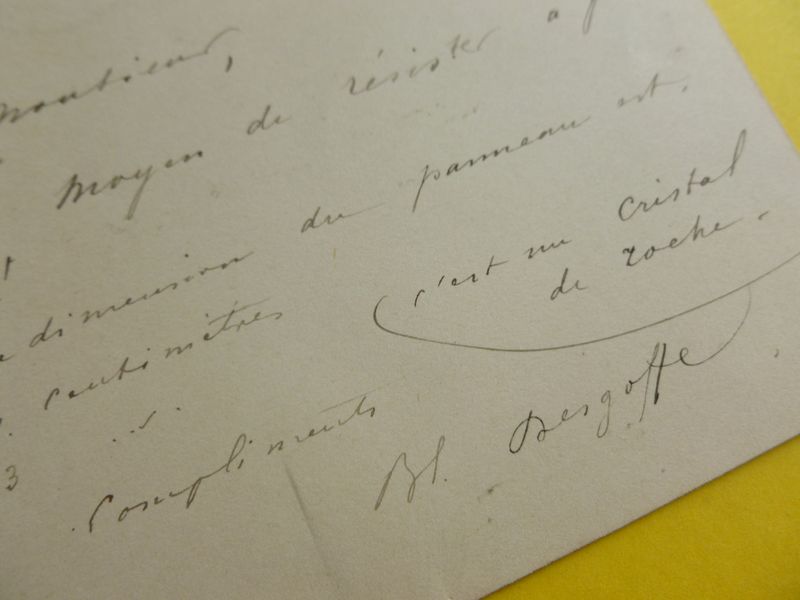 Monsieur,
moyen de résister à
dimension du panneau est.
centimètres
c'est un cristal
de roche.
3
compliments
Bl. Desgoffe